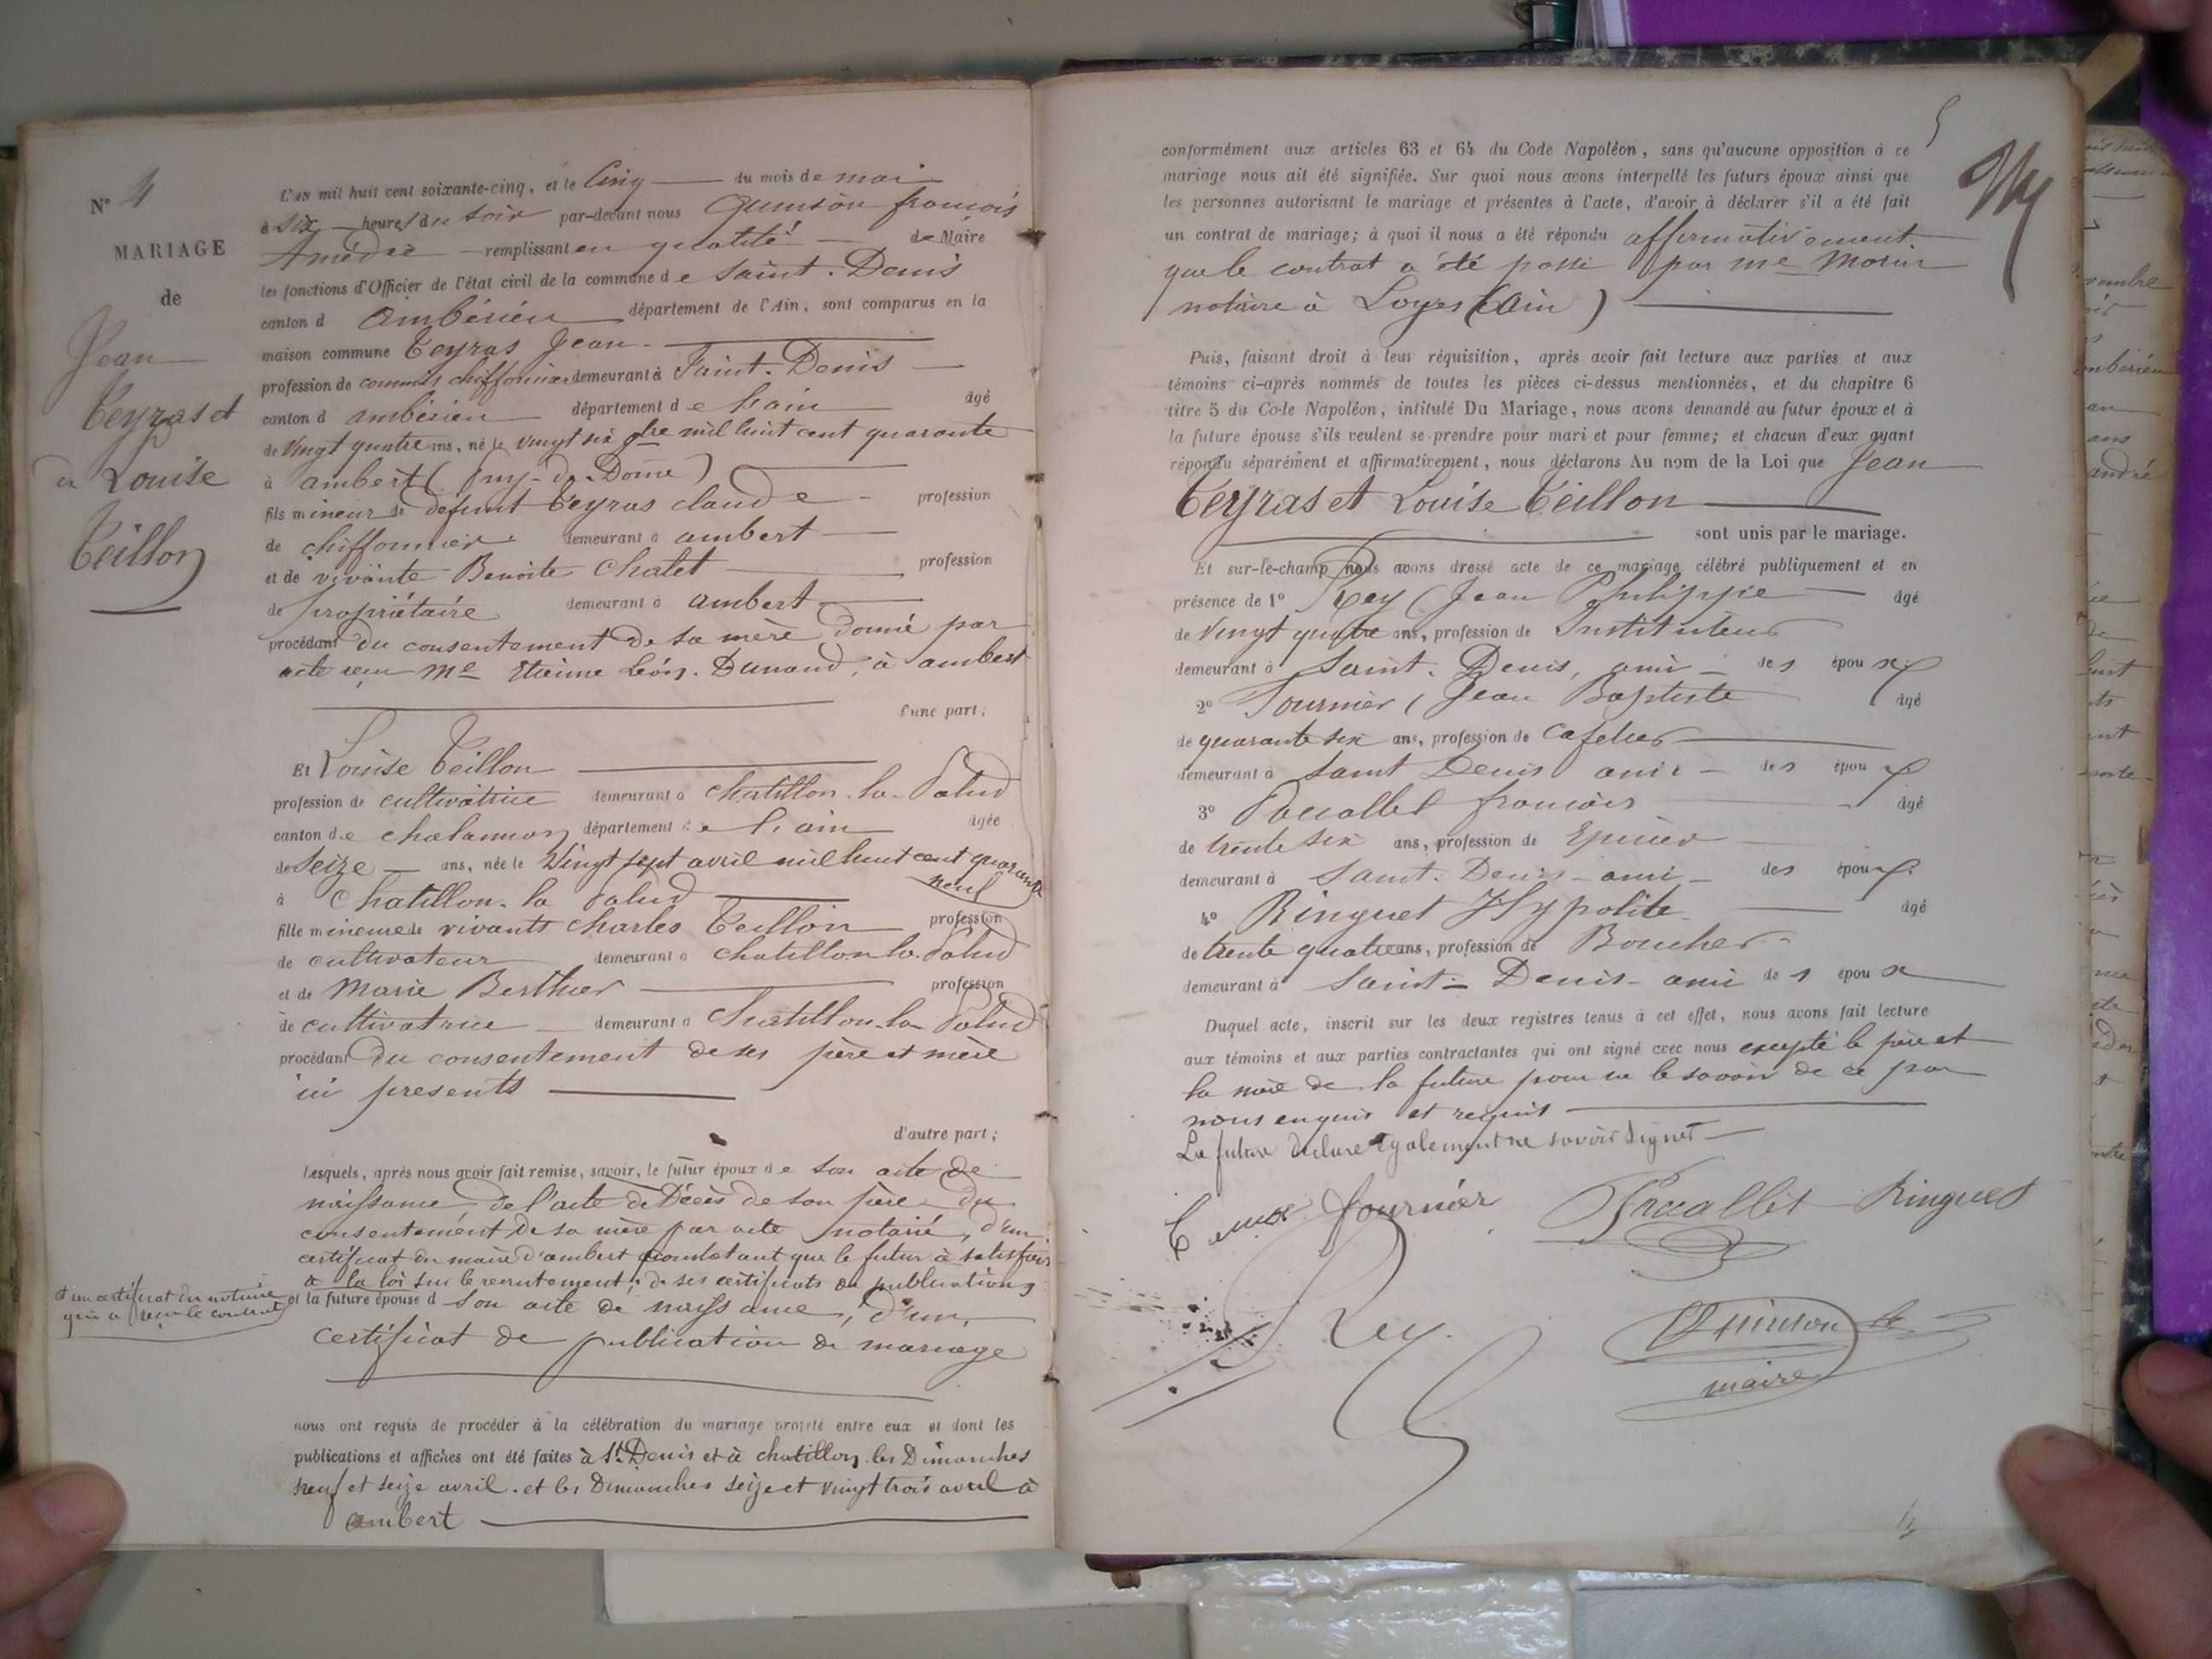 N° 4
MARIAGE
de
Jean
Teyras et
de Louise
Teillon
L'an mil huit cent soixante-cinq, et le Cinq du mois de mai
à six heures du soir par-devant nous Quinson françois
Amédée remplissant en qualité de Maire
les fonctions d'Officier de l'état civil de la commune de Saint-Denis
canton d ambérieu département de l'Ain, sont comparus en la
maison commune Teyras Jean
profession de commis chiffonnier demeurant à Saint-Denis
canton d ambérieu département de l'ain âgé
de Vingt quatre ans, né le vingt six 9bre mil huit cent quarante
à ambert (Puy-de-Dome)
fils mineur de défunt Teyras claude profession
de chiffonnier demeurant à ambert
et de vivante Benoite Chatet profession
de propriétaire demeurant à ambert
procédant du consentement de sa mère donné par
acte reçu Me Etienne Léon Dunaud, à ambert
d'une part;
Et Louise Teillon
profession de cultivatrice demeurant à Chatillon-la-Palud
canton de chalamon département de l'ain âgée
de Seize ans, née le Vingt sept avril mil huit cent quarante
neuf
à Chatillon-la Palud
fille mineure de vivants Charles Teillon profession
de cultivateur demeurant à Chatillon la-Palud
et de Marie Berthier profession
de cultivatrice demeurant à Chatillon-la-Palud
procédant du consentement de ses père et mère
ici presents
d'autre part;
Lesquels, après nous avoir fait remise, savoir, le futur époux de son acte de
naissance, de l'acte de Décès de son père du
consentement de sa mère par acte notarié, d'un
certificat du maire d'ambert constatant que le futur à satisfait
à la loi sur le recrutement, de ses certificats de publications
et un certificat du notaire
qui a reçu le contrat
et la future épouse d son acte de naissance, d'un
certificat de publication de mariage
nous ont requis de procéder à la célébration du mariage projeté entre eux et dont les
publications et affiches ont été faites à St Denis et à chatillon les Dimanches
neuf et seize avril. et les Dimanches seize et vingt trois avril à
ambert
5
conformément aux articles 63 et 64 du Code Napoléon, sans qu'aucune opposition à ce
mariage nous ait été signifiée. Sur quoi nous avons interpellé les futurs époux ainsi que
les personnes autorisant le mariage et présentes à l'acte, d'avoir à déclarer s'il a été fait
un contrat de mariage; à quoi il nous a été répondu affirmativement.
que le contrat a été passé par me Morin
notaire à Loyes (Ain)
Puis, faisant droit à leur réquisition, après avoir fait lecture aux parties et aux
témoins ci-après nommés de toutes les pièces ci-dessus mentionnées, et du chapitre 6
titre 5 du Code Napoléon, intitulé Du Mariage, nous avons demandé au futur époux et à
la future épouse s'ils veulent se prendre pour mari et pour femme; et chacun d'eux ayant
répondu séparément et affirmativement, nous déclarons Au nom de la Loi que Jean
Teyras et Louise Teillon
sont unis par le mariage.
Et sur-le-champ nous avons dressé acte de ce mariage célébré publiquement et en
présence de 1° Rey (Jean Philippe âgé
de Vingt quatre ans, profession de Instituteur
demeurant à Saint-Denis, ami des époux
2° Fournier (Jean Baptiste âgé
de quarante six ans, profession de Cafetier
demeurant à Saint Denis ami des époux
3° Pocallet françois âgé
de trente six ans, profession de Epicier
demeurant à Saint-Denis ami des époux
4° Ringuet Hypolite âgé
de trente quatre ans, profession de Boucher
demeurant à Saint-Denis ami des époux
Duquel acte, inscrit sur les deux registres tenus à cet effet, nous avons fait lecture
aux témoins et aux parties contractantes qui ont signé avec nous excepté le père et
la mère de la future pour ne le savoir de ce par
nous enquis et requis
La future déclare également ne savoir signer
fournier Pocallet Ringuet
Rey
Quinson
maire